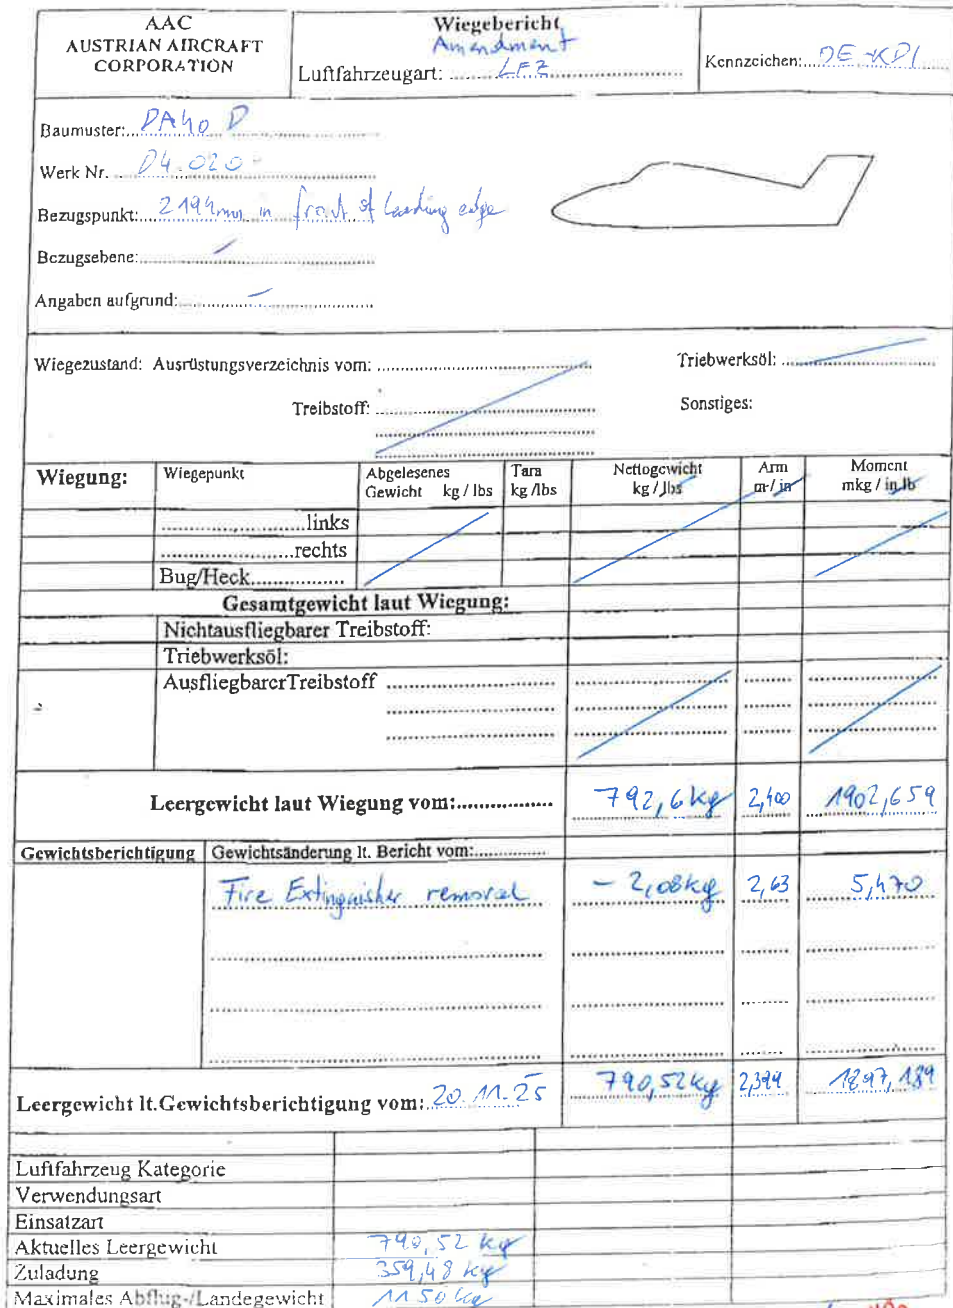 AAC
AUSTRIAN AIRCRAFT
CORPORATION
Wiegebericht
Amendment
Luftfahrzeugart: LFZ
Kennzeichen: OE-KDI
Baumuster: DA40 D
Werk Nr. D4.020
Bezugspunkt: 2194mm in front of Leading edge
Bezugsebene: /
Angaben aufgrund: -
Wiegezustand: Ausrüstungsverzeichnis vom:
Triebwerksöl:
Treibstoff:
Sonstiges:
Wiegung: Wiegepunkt Abgelesenes Gewicht kg / lbs Tara kg /lbs Nettogewicht kg / lbs Arm m / in Moment mkg / in.lb
links
rechts
Bug/Heck
Gesamtgewicht laut Wiegung:
Nichtausfliegbarer Treibstoff:
Triebwerksöl:
AusfliegbarerTreibstoff
Leergewicht laut Wiegung vom: 792,6kg 2,400 1902,659
Gewichtsberichtigung Gewichtsänderung lt. Bericht vom:
Fire Extinguisher removal - 2,08kg 2,63 5,470
Leergewicht lt.Gewichtsberichtigung vom: 20.11.25 790,52kg 2,399 1897,189
Luftfahrzeug Kategorie
Verwendungsart
Einsatzart
Aktuelles Leergewicht 790,52 kg
Zuladung 359,48 kg
Maximales Abflug-/Landegewicht 1150 kg